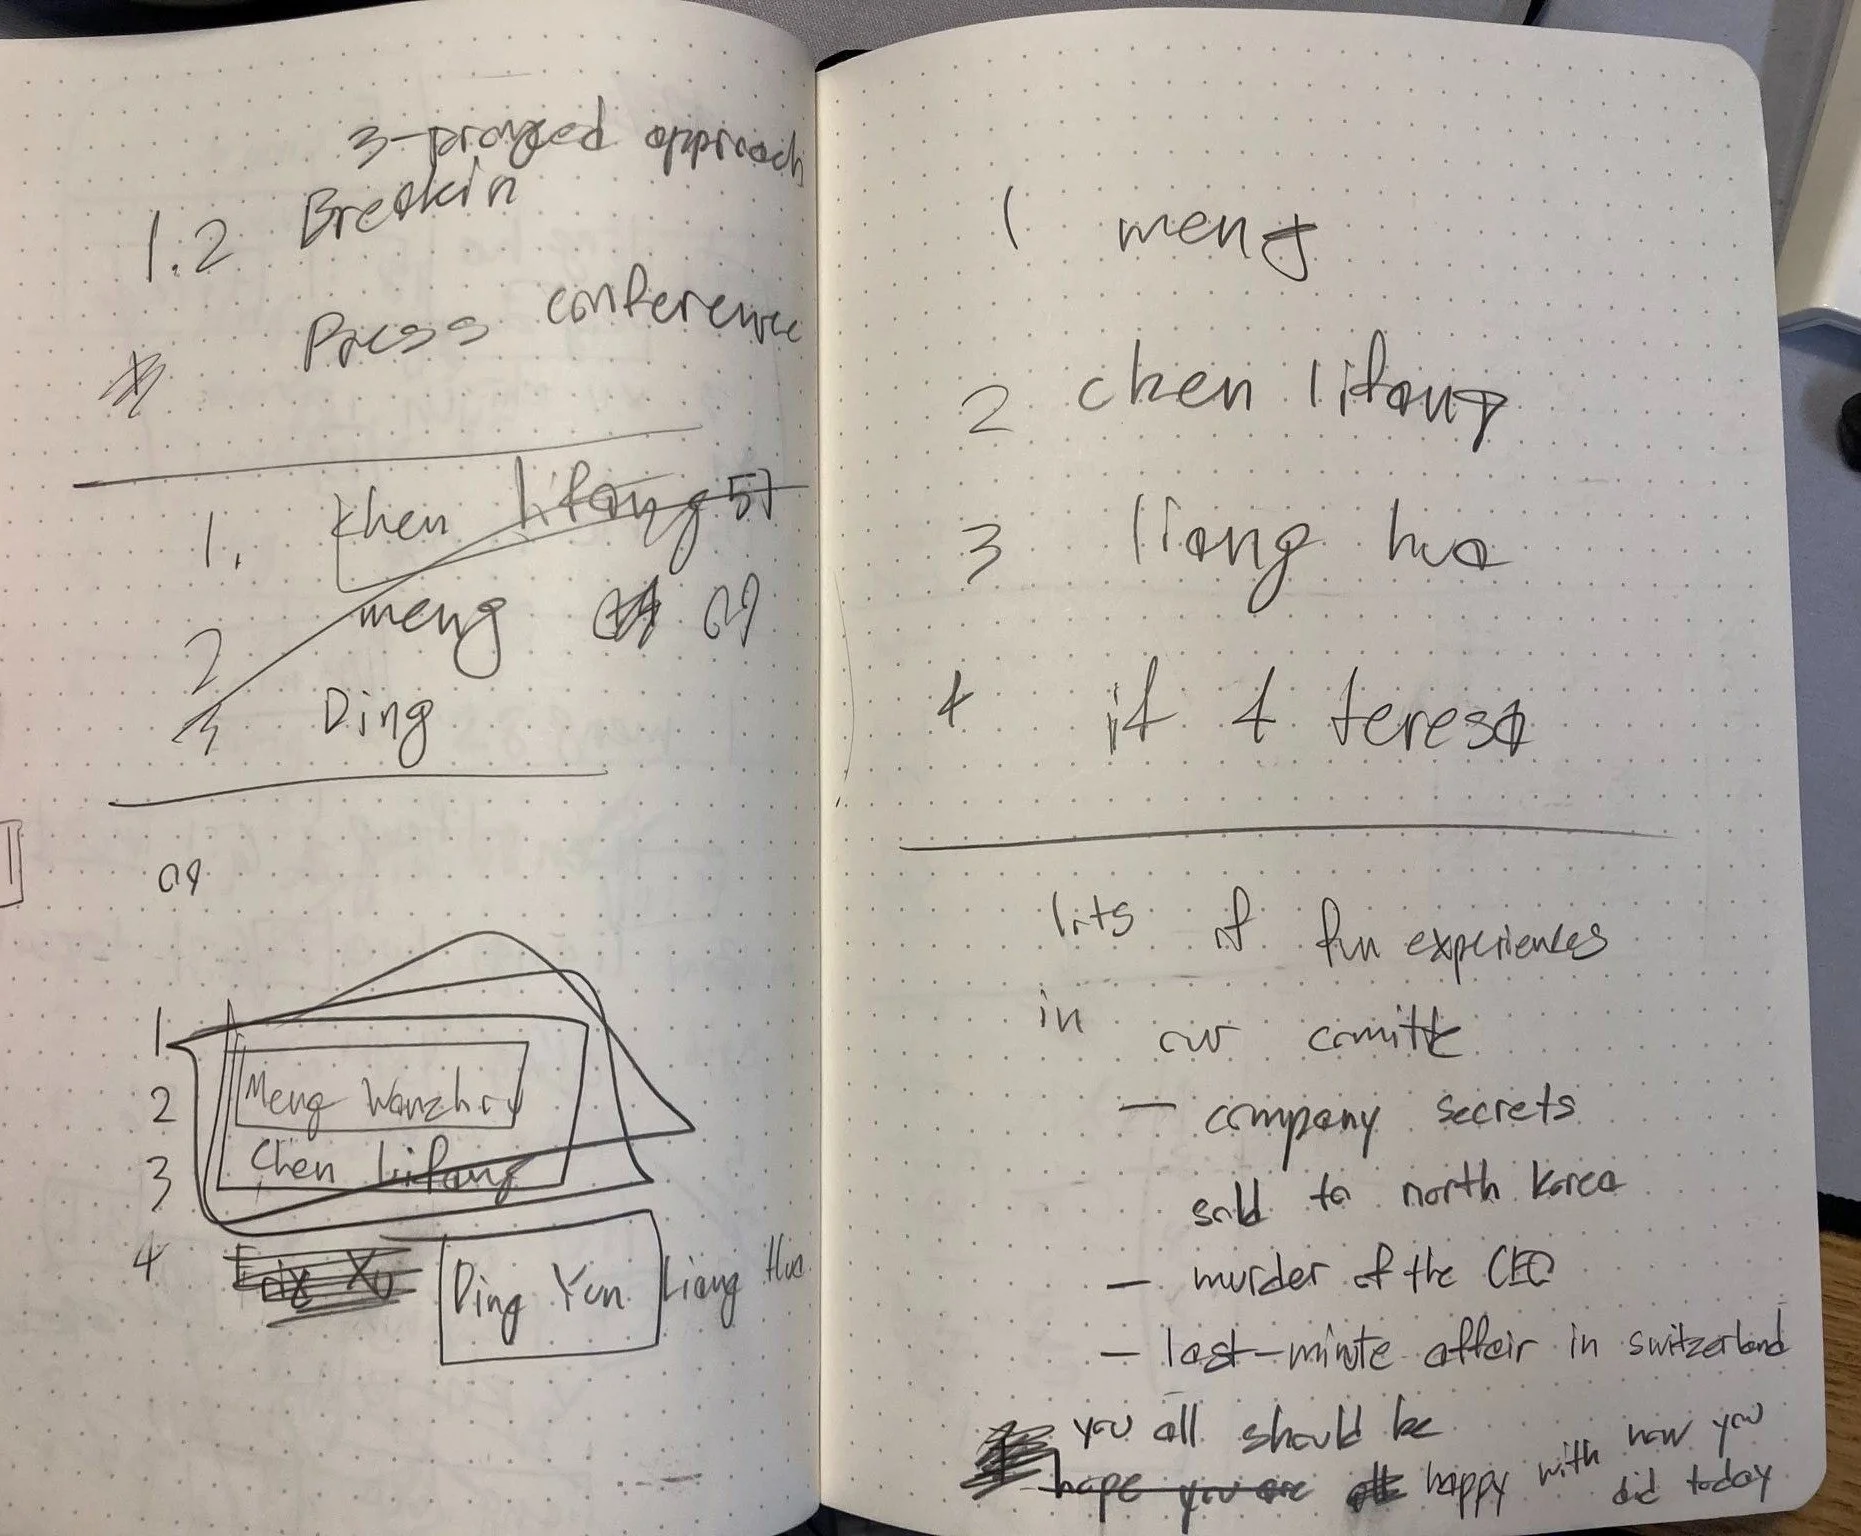 3-pronged approach
1.2 Breakin
Press conference
1. chen lifang
2 meng
3 Ding
09
1
2 Meng Wanzhou
3 Chen Lifang
4 Eric Xu Ding Yun Liang Hua
1 meng
2 chen lifang
3 liang hua
4 if 4 teresa
lots of fun experiences
in our comitte
— company secrets
sold to north korea
— murder of the CEO
— last-minute affair in switzerland
you all should be
hope you are happy with how you
did today